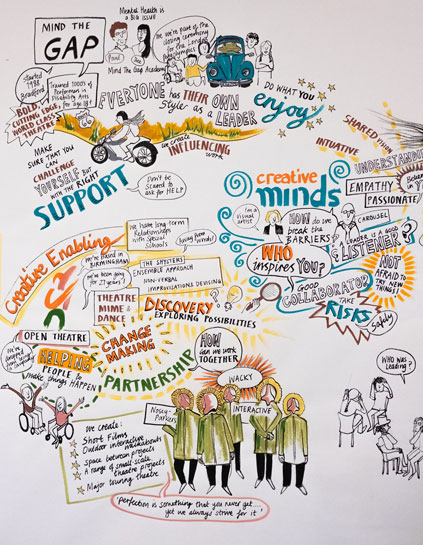 MIND THE
GAP
Mental Health is
a BIG ISSUE!
We're part of the
closing ceremony
for the London
Paralympics
Mind The Gap Academy
Started
1988
Bradford
Trained 1000's of
Performers in
Disability Arts
for age 18+
BOLD,
CUTTING EDGE
WORLD CLASS
THEATRE
EVERYONE has THEIR OWN
Style as a LEADER
DO WHAT YOU
enjoy
we create
INFLUENCING
work
MAKE
SURE THAT YOU
CAN
CHALLENGE
YOURSELF BUT
WITH THE RIGHT
SUPPORT
Don't be
Scared to
ask for HELP
SHARED
INTUATIVE
UNDERSTANDING
EMPATHY
PASSIONATE
creative
minds
I'm a
Visual
artist
HOW do we
break the
BARRIERS?
CAROUSEL
LEADER IS A GOOD
LISTENER?
WHO
inspires YOU?
GOOD
COLLABORATOR
TAKE
RISKS
Safely
NOT
AFRAID to
TRY NEW
THINGS
Creative Enabling
We have long term
Relationships
with Special
Schools
we're Based in
BIRMINGHAM
we've been going
for 21 years!
THE SHYSTERS
ENSEMBLE APPROACH
NON-VERBAL
IMPROVISATIONS DEVISING
THEATRE
MIME &
DANCE
DISCOVERY
EXPLORING POSSIBILITIES
OPEN THEATRE
CHANGE
MAKING
HELPING
PEOPLE to
make things HAPPEN
PARTNERSHIP
HOW
can we work
TOGETHER
WACKY
Nosey-
Parkers
INTERACTIVE
WHO WAS
LEADING?
we create:
Short Films
Outdoor interactive
walkabouts
Space between projects
A range of small-scale
theatre projects
Major touring theatre
'Perfection is something that you never get....
yet we always strive for it'